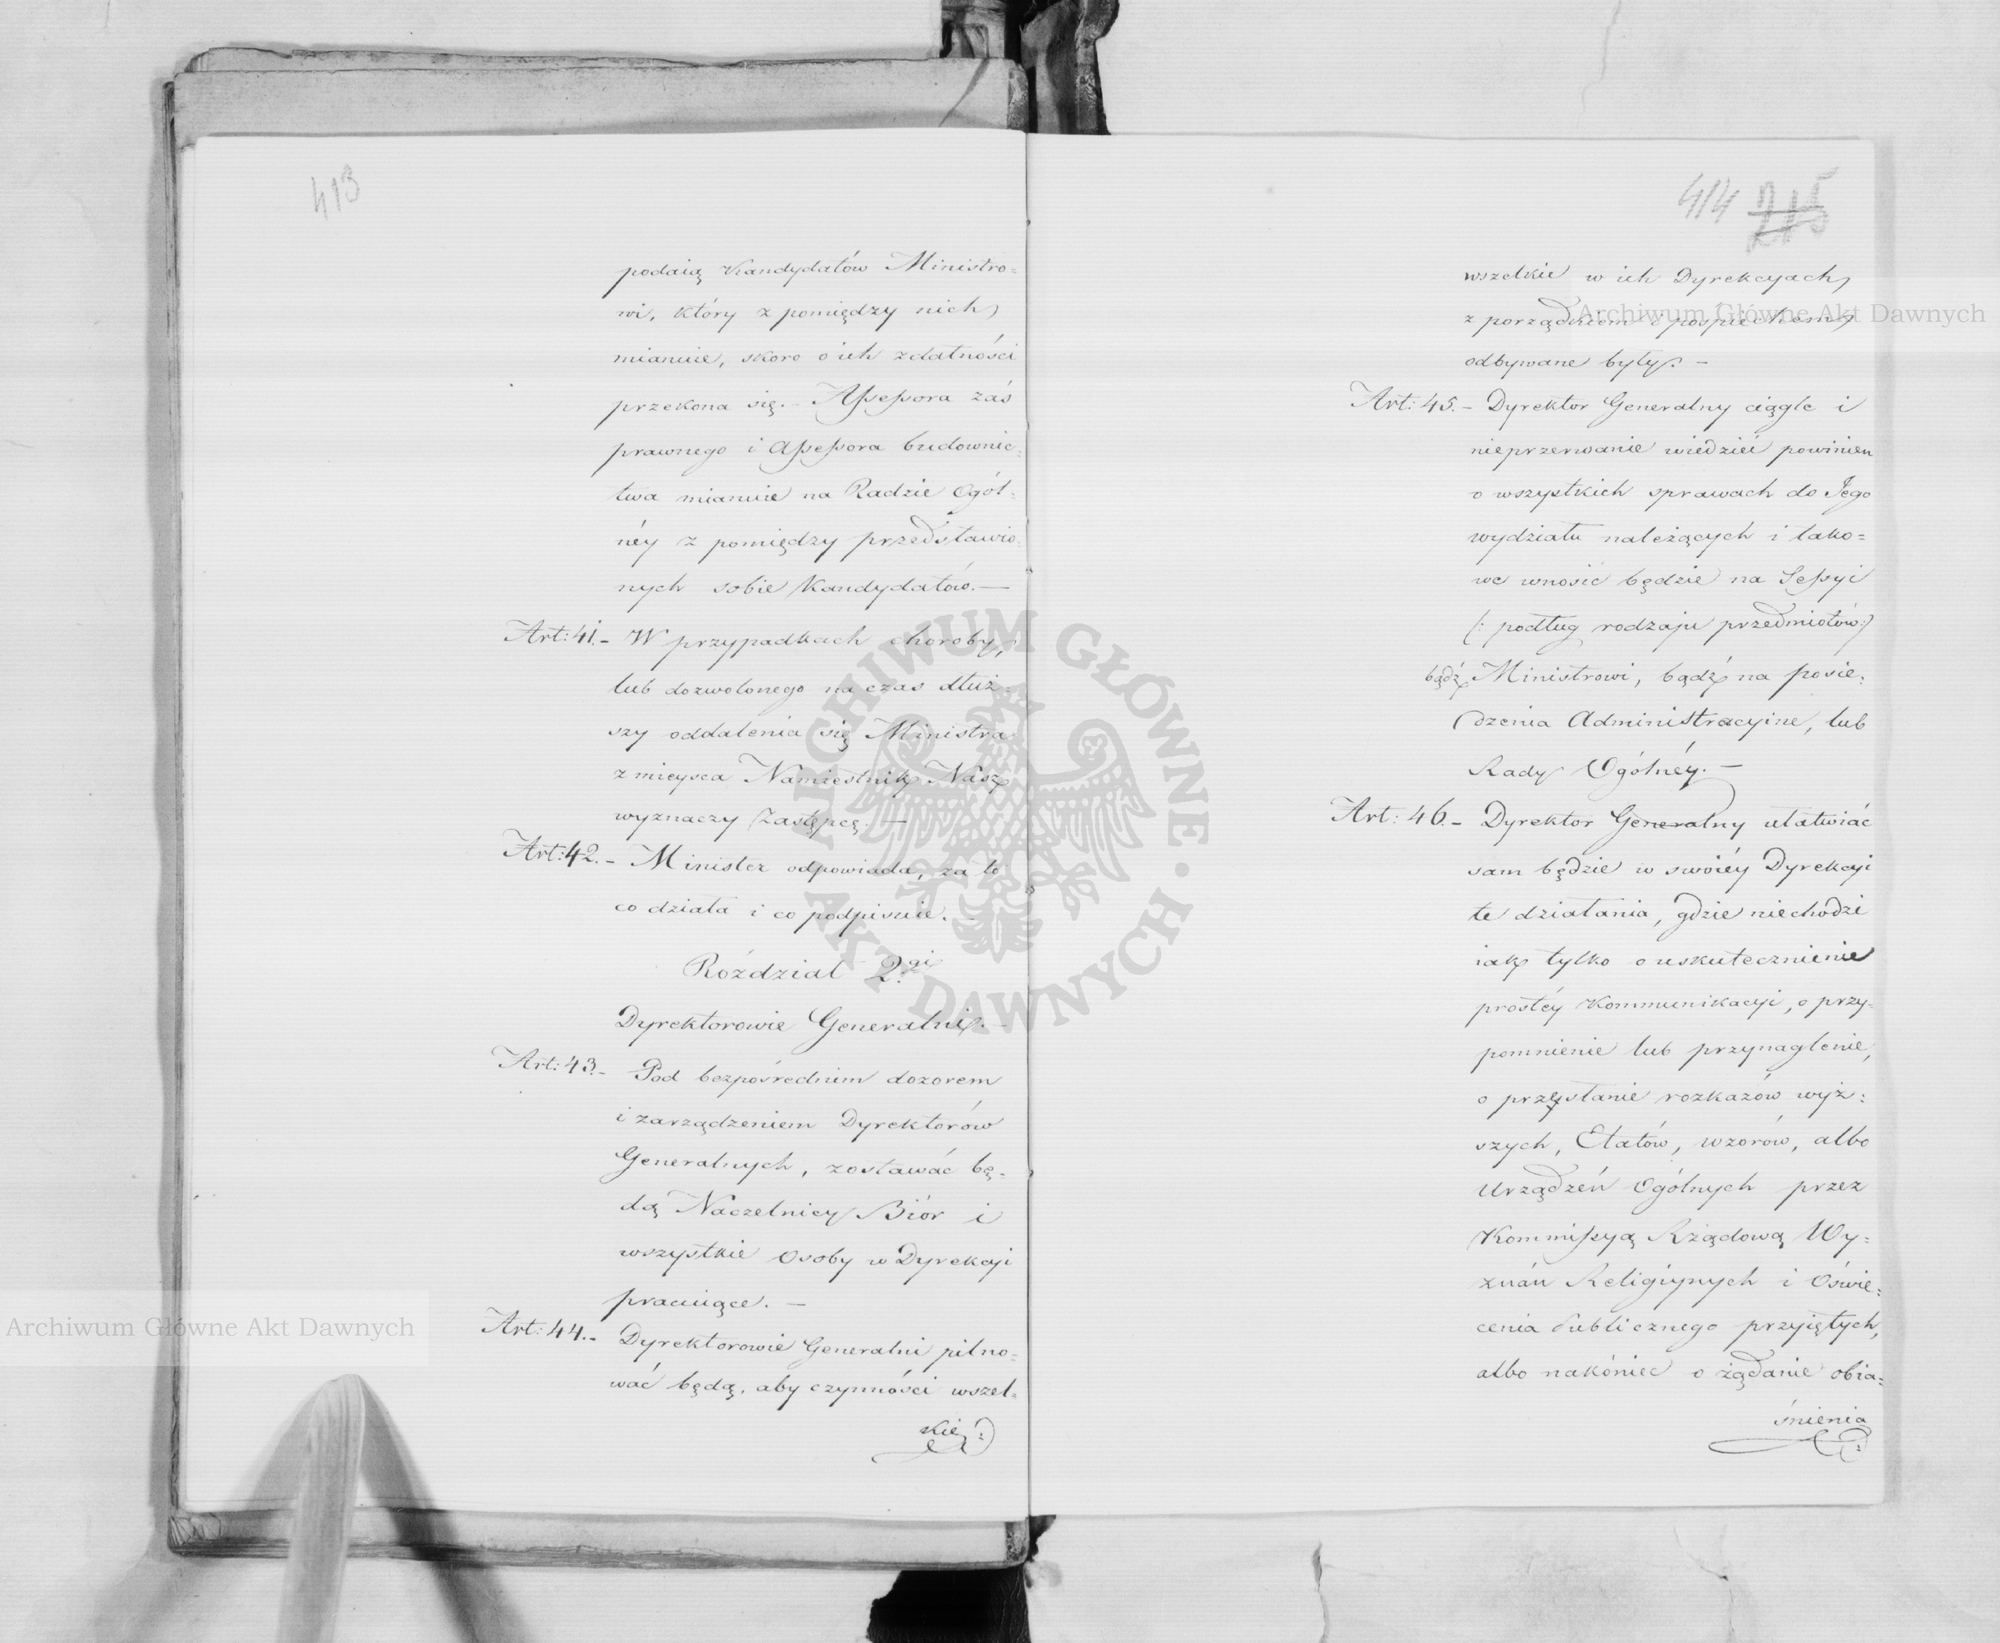 413
podaią Kandydatów Ministro=
wi, który z pomiędzy nich
mianuie, skoro o ich zdatności
przekona się. – Assessora zaś
prawnego i Assessora budownic=
twa mianuie na Radzie Ogól=
néy z pomiędzy przedstawio=
nych sobie Kandydatów. —
Art: 41. – W przypadkach choroby,
lub dozwolonego na czas dłuż=
szy oddalenia się Ministra
z mieysca Namiestnik Nasz
wyznaczy Zastępcę. —
Art: 42. – Minister odpowiada, za to
co działa i co podpisuie. –
Roździał 2.gi
Dyrektorowie Generalni. –
Art: 43. – Pod bezpośrednim dozorem
i zarządzeniem Dyrektórów
Generalnych, zostawać bę=
dą Naczelnicy Biór i
wszystkie Osoby w Dyrekcyi
pracuiące. –
Art: 44. – Dyrektorowie Generalni pilno=
wać będą, aby czynności wszel=
kie
414 215
wszelkie w ich Dyrekcyach
z porządkiem i pospiechem
odbywane były. –
Art: 45. – Dyrektor Generalny ciągle i
nieprzerwanie wiedzieć powinien
o wszystkich sprawach do Jego
wydziału należących i tako=
we wnosić będzie na Sessyi
(: podług rodzaju przedmiotów:)
bądź Ministrowi, bądź na posie=
dzenia Administracyine, lub
Rady Ogólnéy. –
Art: 46. – Dyrektor Generalny ułatwiać
sam będzie w swoiéy Dyrekcyi
te działania, gdzie niechodzi
iak tylko o uskutecznienie
prostéy Kommunikacyi, o przy=
pomnienie lub przynaglenie,
o przesłanie rozkazów wyż=
szych, Etatów, wzorów, albo
Urządzeń Ogólnych przez
Kommissyą Rządową Wy=
znań Religiynych i Oświe=
cenia Publicznego przyiętych,
albo nakóniec o żądanie obia=
śnienia
Archiwum Główne Akt Dawnych
Archiwum Główne Akt Dawnych
ARCHIWUM GŁÓWNE · AKT DAWNYCH